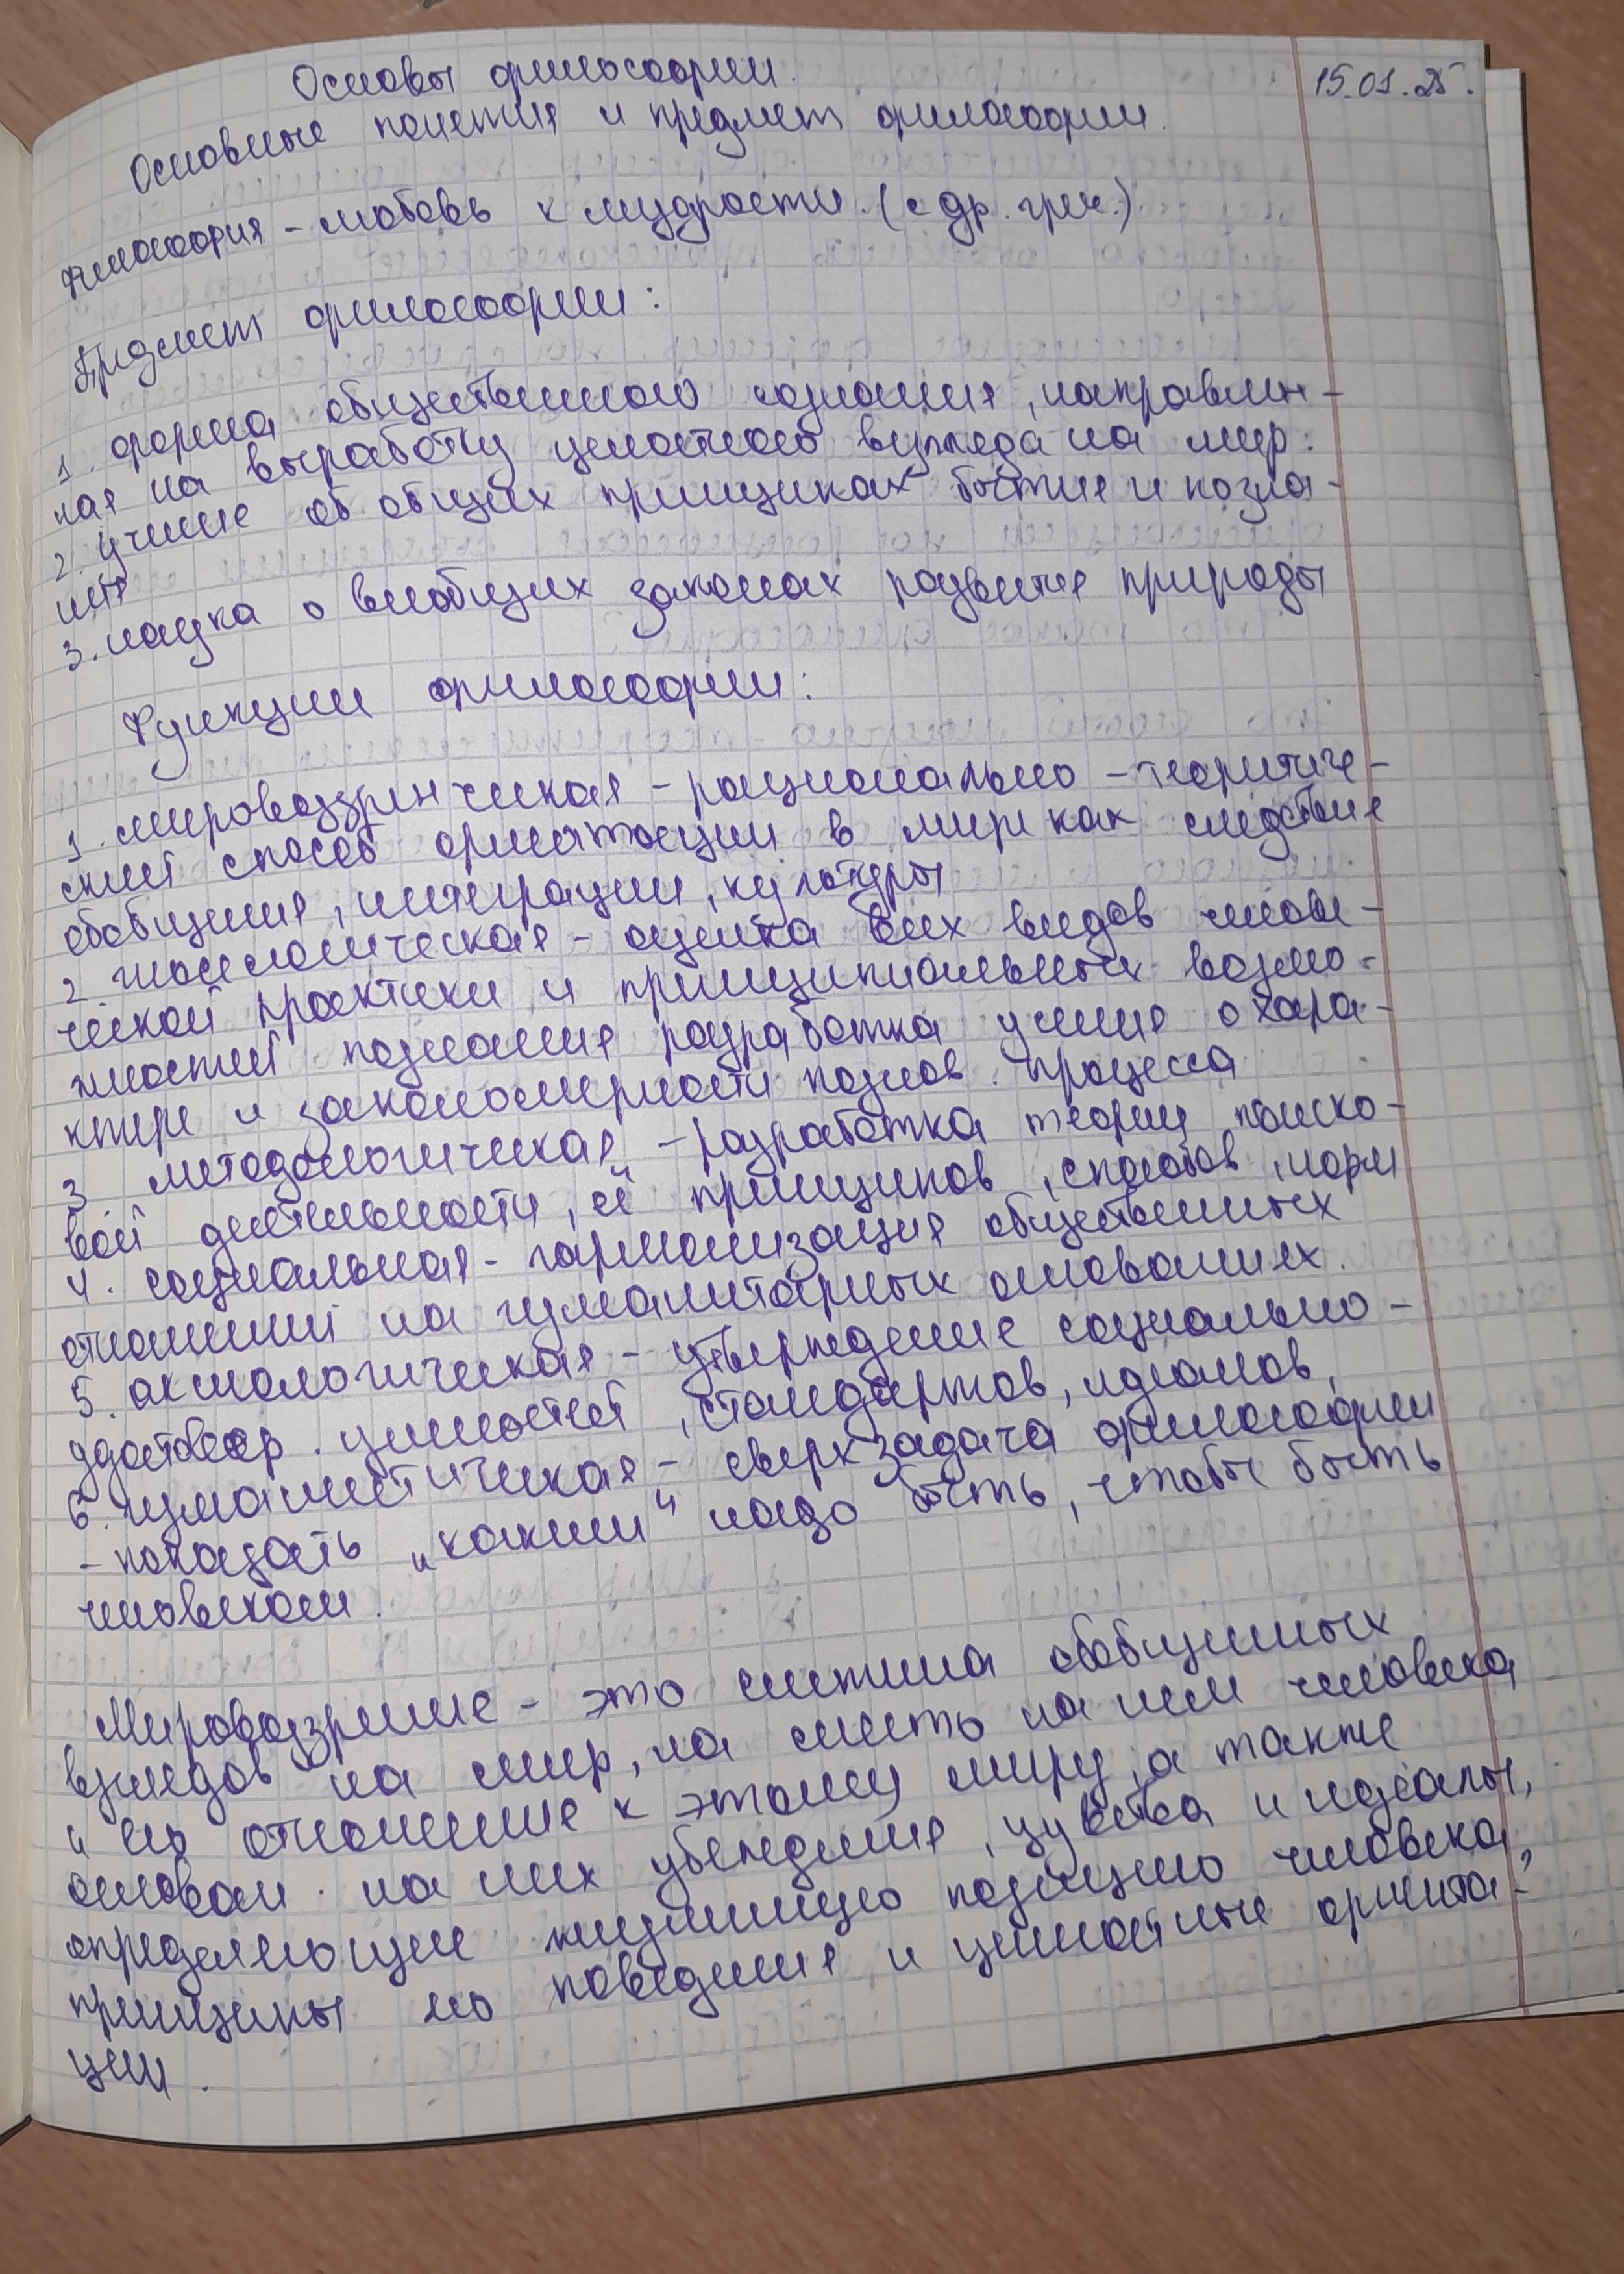 15.01.25.
Основы философии.
Основные понятия и предмет философии.
Философия - любовь к мудрости. (с др. греч.)
Предмет философии:
1. форма общественного сознания, направлен-
ная на выработку целостного взгляда на мир.
2. учение об общих принципах бытия и позна-
ния
3. наука о всеобщих законах развития природы
Функции философии:
1. мировоззренческая - рационально - теоритиче-
ский способ ориентации в мире как следствие
обобщения, интеграции, культуры
2. гносеологическая - оценка всех видов челове-
ческой практики и принципиальных возмо-
жностей познания разработка учения о хара-
ктере и закономерности познов. процесса
3 методологическая - разработка теории поиско-
вой деятельности, её принципов, способов, норм
4. социальная - гармонизация общественных
отношений на гуманитарных основаниях.
5. аксиологическая - утверждение социально -
ценностей, стандартов, идеалов,
6. гуманистическая - сверхзадача философии
- показать "каким" надо быть, чтобы быть
человеком.
Мировоззрение - это система обобщенных
взглядов на мир, на место на нем человека
и его отношение к этому миру, а также
основан. на них убеждения, чувства и идеалы,
определяющие жизненную позицию человека,
принципы его поведения и ценностные ориента-
ции.